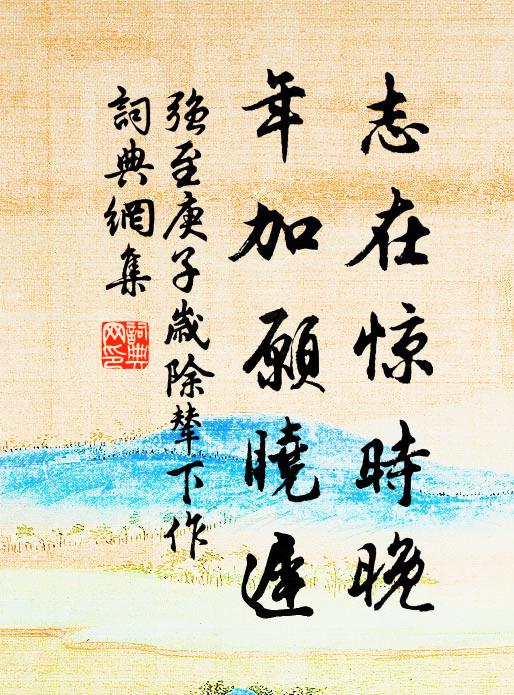 志在惊時晚
年加願曉遲
強至庚子歲除輦下作
詞典網集
詞典网印